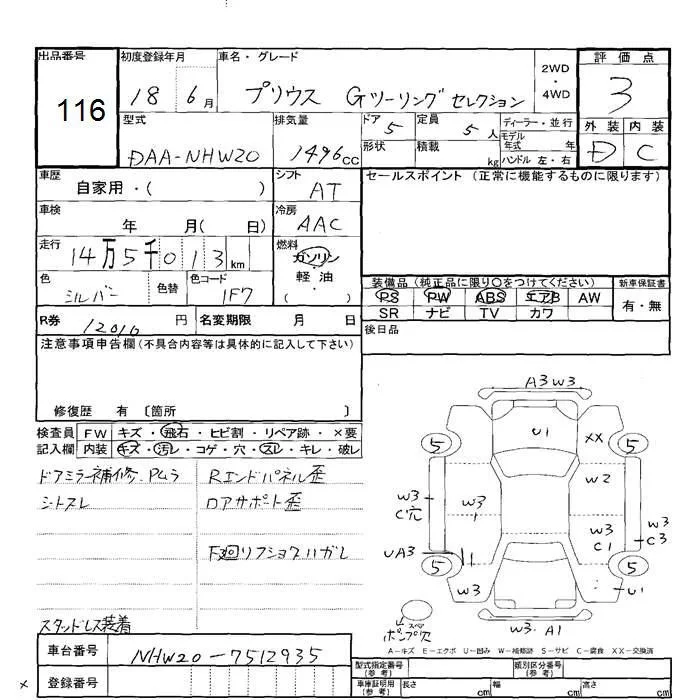 出品番号 初度登録年月 車名・グレード 2WD・4WD 評価点
116 18 6月 プリウス Gツーリングセレクション 3
型式 排気量 ドア 5 定員 5人 ディーラー・並行 外装 内装
DAA-NHW20 1496cc 形状 積載 kg モデル年式 年 D C
ハンドル 左・右
車歴 自家用・( ) シフト AT セールスポイント (正常に機能するものに限ります)
車検 年 月( 日) 冷房 AAC
走行 14万5千013km 燃料 ガソリン
軽・油
( )
色 シルバー 色替 色コード 1F7
装備品 (純正品に限り○をつけてください) 新車保証書
PS PW ABS エアB AW 有・無
SR ナビ TV カワ
R券 12010 円 名変期限 月 日 後日品
注意事項申告欄 (不具合内容等は具体的に記入して下さい)
修復歴 有 〔箇所 〕
検査員 FW キズ・飛石・ヒビ割・リペア跡・×要
記入欄 内装 キズ・汚レ・コゲ・穴・スレ・キレ・破レ
ドアミラー補修、PMラ Rエンドパネル歪
シートスレ ロアサポート歪
下廻リフショクハガレ
スタッドレス装着
A3 W3
U1 XX
5 5
W2
W3 C穴 W3 W3 C1 W3 C3
UA3
5 5
W3 U1
スペア
ポンプ穴 W3 A1
A-キズ E-エクボ U-凹み W-補修跡 S-サビ C-腐食 XX-交換済
車台番号 NHW20-7512935
× 登録番号
型式指定番号 (参考) 類別区分番号 (参考)
車庫証明用 (参考) 長さ cm 幅 cm 高さ cm